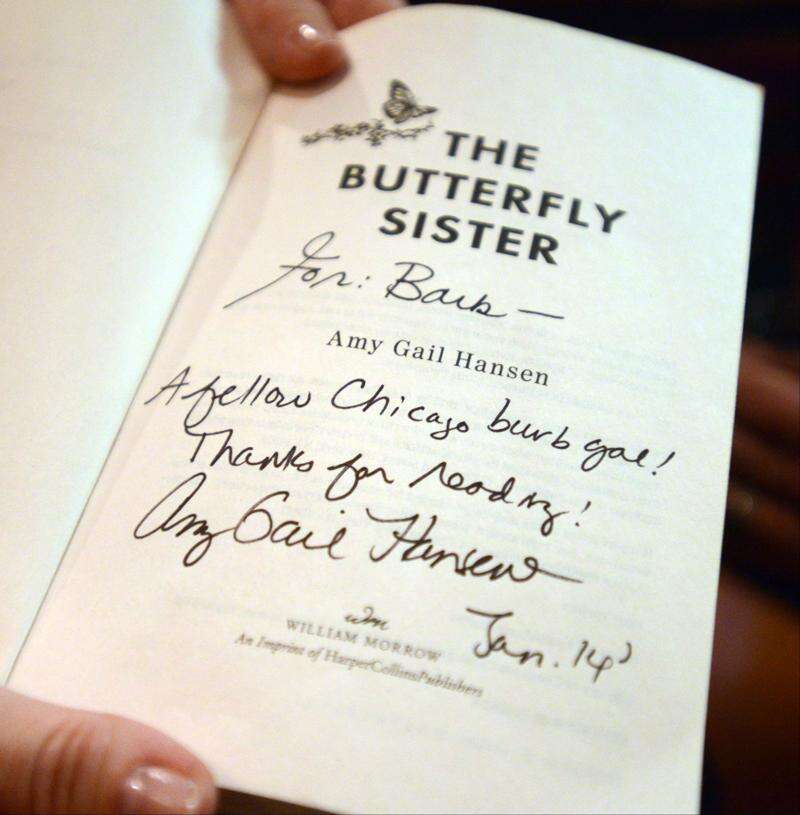 THE
BUTTERFLY
SISTER
For: Barb —
Amy Gail Hansen
A fellow Chicago burb gal!
Thanks for reading!
Amy Gail Hansen
Jan. 14'
wm
WILLIAM MORROW
An Imprint of HarperCollinsPublishers